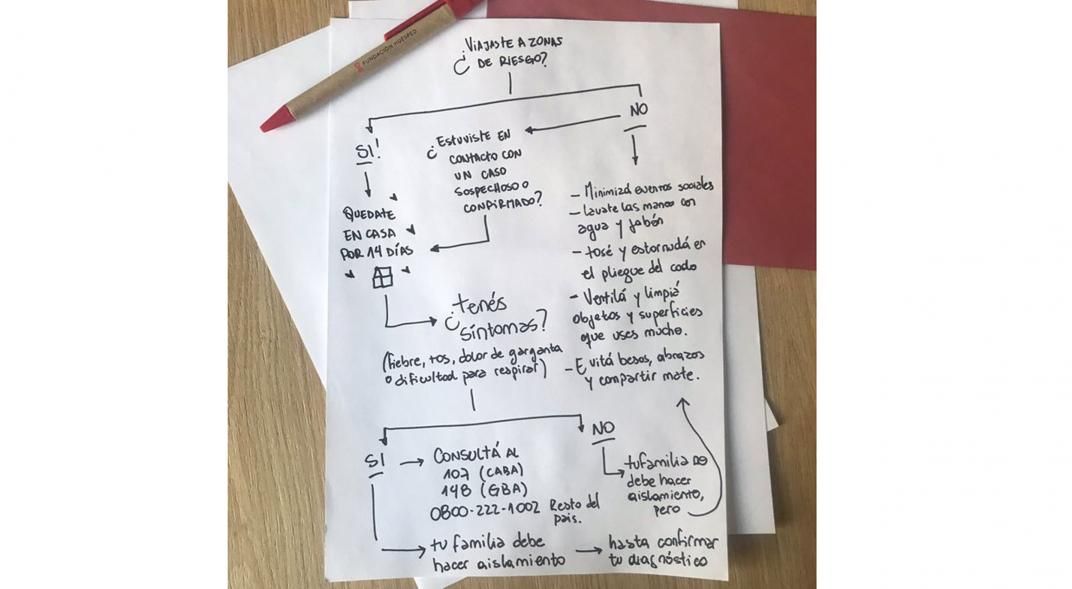 FUNDACIÓN HUÉSPED
¿VIAJASTE A ZONAS
DE RIESGO?
SI!
NO
¿ESTUVISTE EN
CONTACTO CON
UN CASO
SOSPECHOSO O
CONFIRMADO?
QUEDATE
EN CASA
POR 14 DÍAS
- Minimizá eventos sociales
- Lavate las manos con
agua y jabón
- tosé y estornudá en
el pliegue del codo
- Ventilá y limpiá
objetos y superficies
que uses mucho.
- Evitá besos, abrazos
y compartir mate.
¿tenés
síntomas?
(fiebre, tos, dolor de garganta
o dificultad para respirar)
SI
CONSULTÁ AL
107 (CABA)
148 (GBA)
0800-222-1002 Resto del
país.
NO
tu familia no
debe hacer
aislamiento,
pero
tu familia debe
hacer aislamiento
hasta confirmar
tu diagnóstico